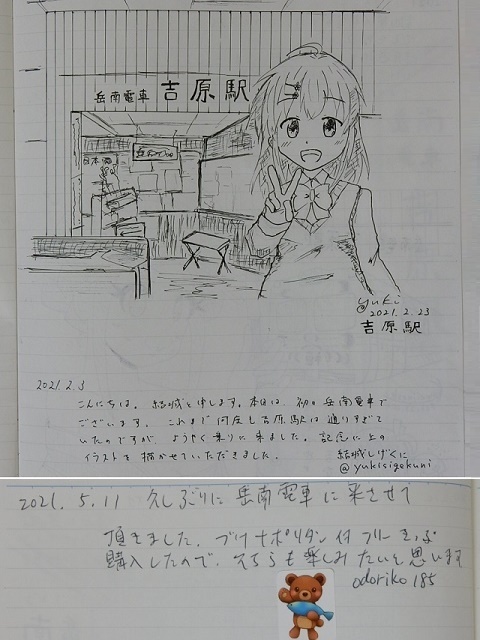 岳南電車 吉原駅
@yuki
2021.2.23
吉原駅
2021.2.3
こんにちは。結城と申します。本日は、初の岳南電車で
ございます。これまで何度も吉原駅は通りすぎて
いたのですが、ようやく乗りに来ました。記念に上の
イラストを描かせていただきました。
結城しげくに
@yukisigekuni
2021.5.11 久しぶりに岳南電車に来させて
頂きました。ブツナポリタン付フリーきっぷ
購入したので、そちらも楽しみたいと思います
odoriko185